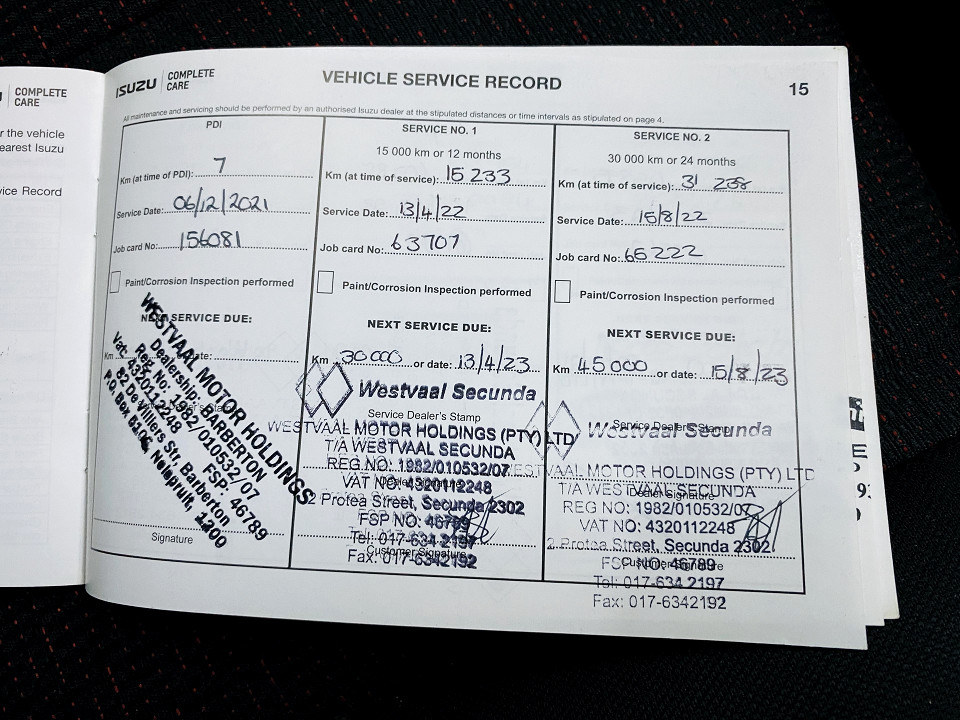 COMPLETE
CARE
r the vehicle
earest Isuzu
vice Record
ISUZU COMPLETE
CARE
VEHICLE SERVICE RECORD
15
All maintenance and servicing should be performed by an authorised Isuzu dealer at the stipulated distances or time intervals as stipulated on page 4.
PDI
Km (at time of PDI): 7
Service Date: 06/12/2021
Job card No: 156081
Paint/Corrosion Inspection performed
NEXT SERVICE DUE:
Km or date:
WESTVAAL MOTOR HOLDINGS
Dealership: BARBERTON
Reg. No: 1982/010532/07
Vat: 4320112248 FSP: 46789
82 De Villiers Str. Barberton
Nelspruit, 1200
Signature
SERVICE NO. 1
15 000 km or 12 months
Km (at time of service): 15 233
Service Date: 13/4/22
Job card No: 63707
Paint/Corrosion Inspection performed
NEXT SERVICE DUE:
Km 30 000 or date: 13/4/23
Westvaal Secunda
Service Dealer's Stamp
WESTVAAL MOTOR HOLDINGS (PTY) LTD
T/A WESTVAAL SECUNDA
REG NO: 1982/010532/07
VAT NO: 4320112248
Dealer Signature
2 Protea Street, Secunda 2302
FSP NO: 46789
Tel: 017-634 2197
Customer Signature
Fax: 017-6342192
SERVICE NO. 2
30 000 km or 24 months
Km (at time of service): 31 238
Service Date: 15/8/22
Job card No: 65222
Paint/Corrosion Inspection performed
NEXT SERVICE DUE:
Km 45 000 or date: 15/8/23
Westvaal Secunda
Service Dealer's Stamp
WESTVAAL MOTOR HOLDINGS (PTY) LTD
T/A WESTVAAL SECUNDA
Dealer Signature
REG NO: 1982/010532/07
VAT NO: 4320112248
2 Protea Street, Secunda 2302
FSP NO: 46789
Customer Signature
Tel: 017-634 2197
Fax: 017-6342192